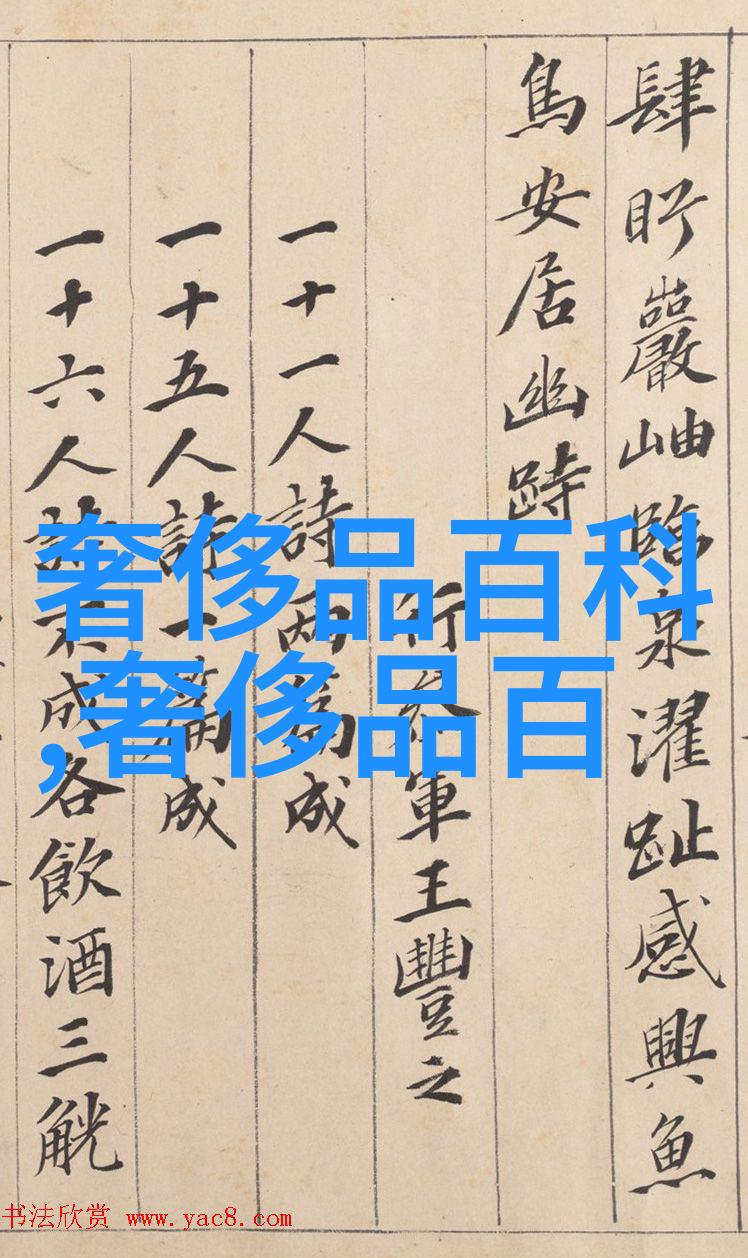 肆盻巖岫臨泉濯趾感興魚
鳥安居幽跱
行參軍王豐之
一十一人詩兩篇成
一十五人詩一篇成
一十六人詩不成各飲酒三觥
奢侈品百科
,奢侈品百
书法欣赏 www.yac8.com